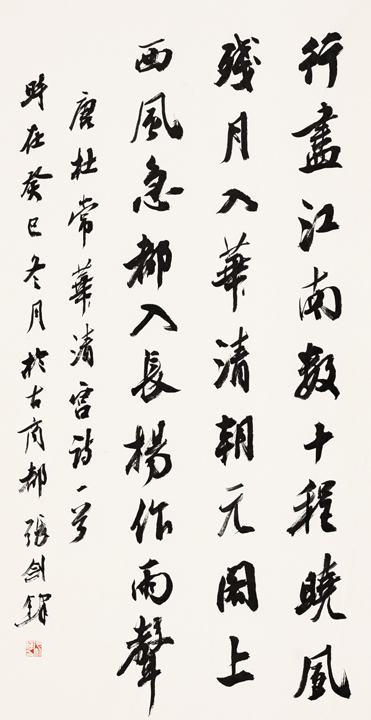 行盡江南數十程曉風
殘月入華清朝元閣上
西風急都入長楊作雨聲
唐杜常華清宮詩一首
時在癸巳冬月於古商都張劍鋒